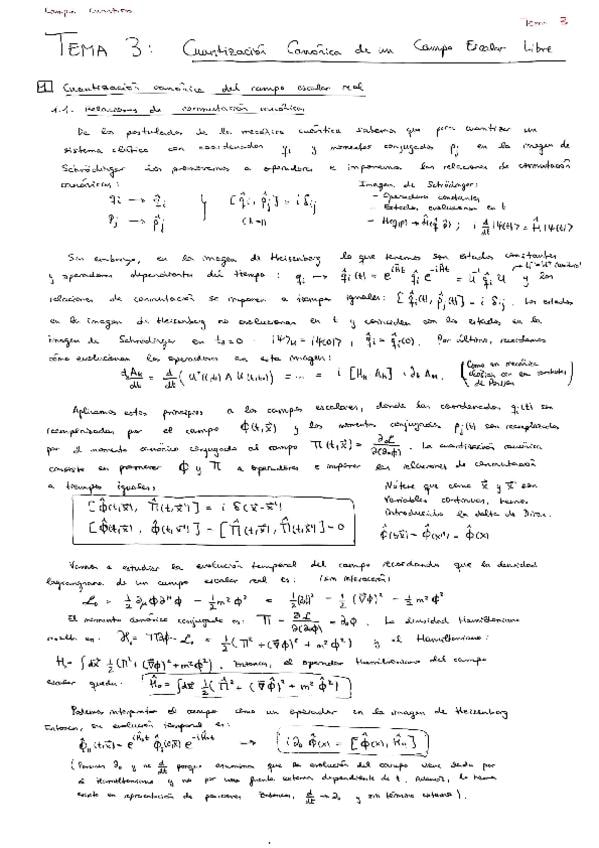 Campos Cuánticos
Tema 3
TEMA 3: Cuantización Canónica de un Campo Escalar Libre
1 Cuantización canónica del campo escalar real
1.1. Relaciones de conmutación canónicas
De los postulados de la mecánica cuántica sabemos que para cuantizar un
sistema clásico con coordenadas qi y momentos conjugados pj en la imagen de
Schrödinger los promovemos a operadores e imponemos las relaciones de conmutación
canónicas:
Imagen de Schrödinger:
qi → q̂i
[q̂i, p̂j] = i δij
- Operadores constantes
- Estados evolucionan en t
pj → p̂j
(ħ=1)
- H(q,p) → Ĥ(q̂,p̂) ; i d/dt |Ψ(t)> = Ĥ |Ψ(t)>
Sin embargo, en la imagen de Heisenberg lo que tenemos son estados constantes
y operadores dependientes del tiempo: qi → q̂i(t) = e^{iĤt} q̂i e^{-iĤt} = U^{-1} q̂i U y las
relaciones de conmutación se imponen a tiempos iguales: [q̂i(t), p̂j(t)] = i δij. Los estados
en la imagen de Heisenberg no evolucionan en t y coinciden con los estados en la
imagen de Schrödinger en t0=0: |Ψ>H = |Ψ(0)>, q̂i = q̂i(0). Por último, recordemos
cómo evolucionan los operadores en esta imagen:
dAH/dt = d/dt (U⁺(t,t0) A U(t,t0)) = ... = i [HH, AH] + ∂t AH.
(Como en mecánica
clásica con los corchetes
de Poisson)
Aplicamos estos principios a los campos escalares, donde las coordenadas qi(t) son
reemplazadas por el campo Φ(t,x⃗) y los momentos conjugados pj(t) son reemplazados
por el momento canónico conjugado al campo Π(t,x⃗) = ∂L/∂(∂0Φ). La cuantización canónica
consiste en promover Φ y Π a operadores e imponer las relaciones de conmutación
a tiempos iguales:
Nótese que como x⃗ y x⃗' son
variables continuas, hemos
introducido la delta de Dirac.
[Φ̂(t,x⃗), Π̂(t,x⃗')] = i δ(x⃗-x⃗')
[Φ̂(t,x⃗), Φ̂(t,x⃗')] = [Π̂(t,x⃗), Π̂(t,x⃗')] = 0
Vamos a estudiar la evolución temporal del campo recordando que la densidad
lagrangiana de un campo escalar real es: (sin interacción)
L0 = 1/2 ∂μΦ∂^μΦ - 1/2 m²Φ² = 1/2 (∂0Φ)² - 1/2 (∇⃗Φ)² - 1/2 m²Φ²
El momento canónico conjugado es: Π = ∂L/∂(∂0Φ) = ∂0Φ. La densidad Hamiltoniana
resulta en: H0 = Π∂0Φ - L0 = 1/2 (Π² + (∇⃗Φ)² + m²Φ²) y el Hamiltoniano:
H = ∫dx⃗ 1/2 (Π² + (∇⃗Φ)² + m²Φ²). Entonces, el operador Hamiltoniano del campo
escalar queda: Ĥ0 = ∫dx⃗ 1/2 (Π̂² + (∇⃗Φ̂)² + m²Φ̂²)
Podemos interpretar el campo como un operador en la imagen de Heisenberg
Entonces, su evolución temporal es:
Φ̂H(t,x⃗) = e^{iĤ0t} Φ̂(0,x⃗) e^{-iĤ0t} → i∂0 Φ̂(x) = [Φ̂(x), Ĥ0]
(Ponemos ∂0 y no d/dt porque asumimos que la evolución del campo viene dada por
el Hamiltoniano y no por una fuente externa dependiente de t. Además, lo hemos
escrito en representación de posiciones. Entonces, d/dt → ∂0 y sin término externo).